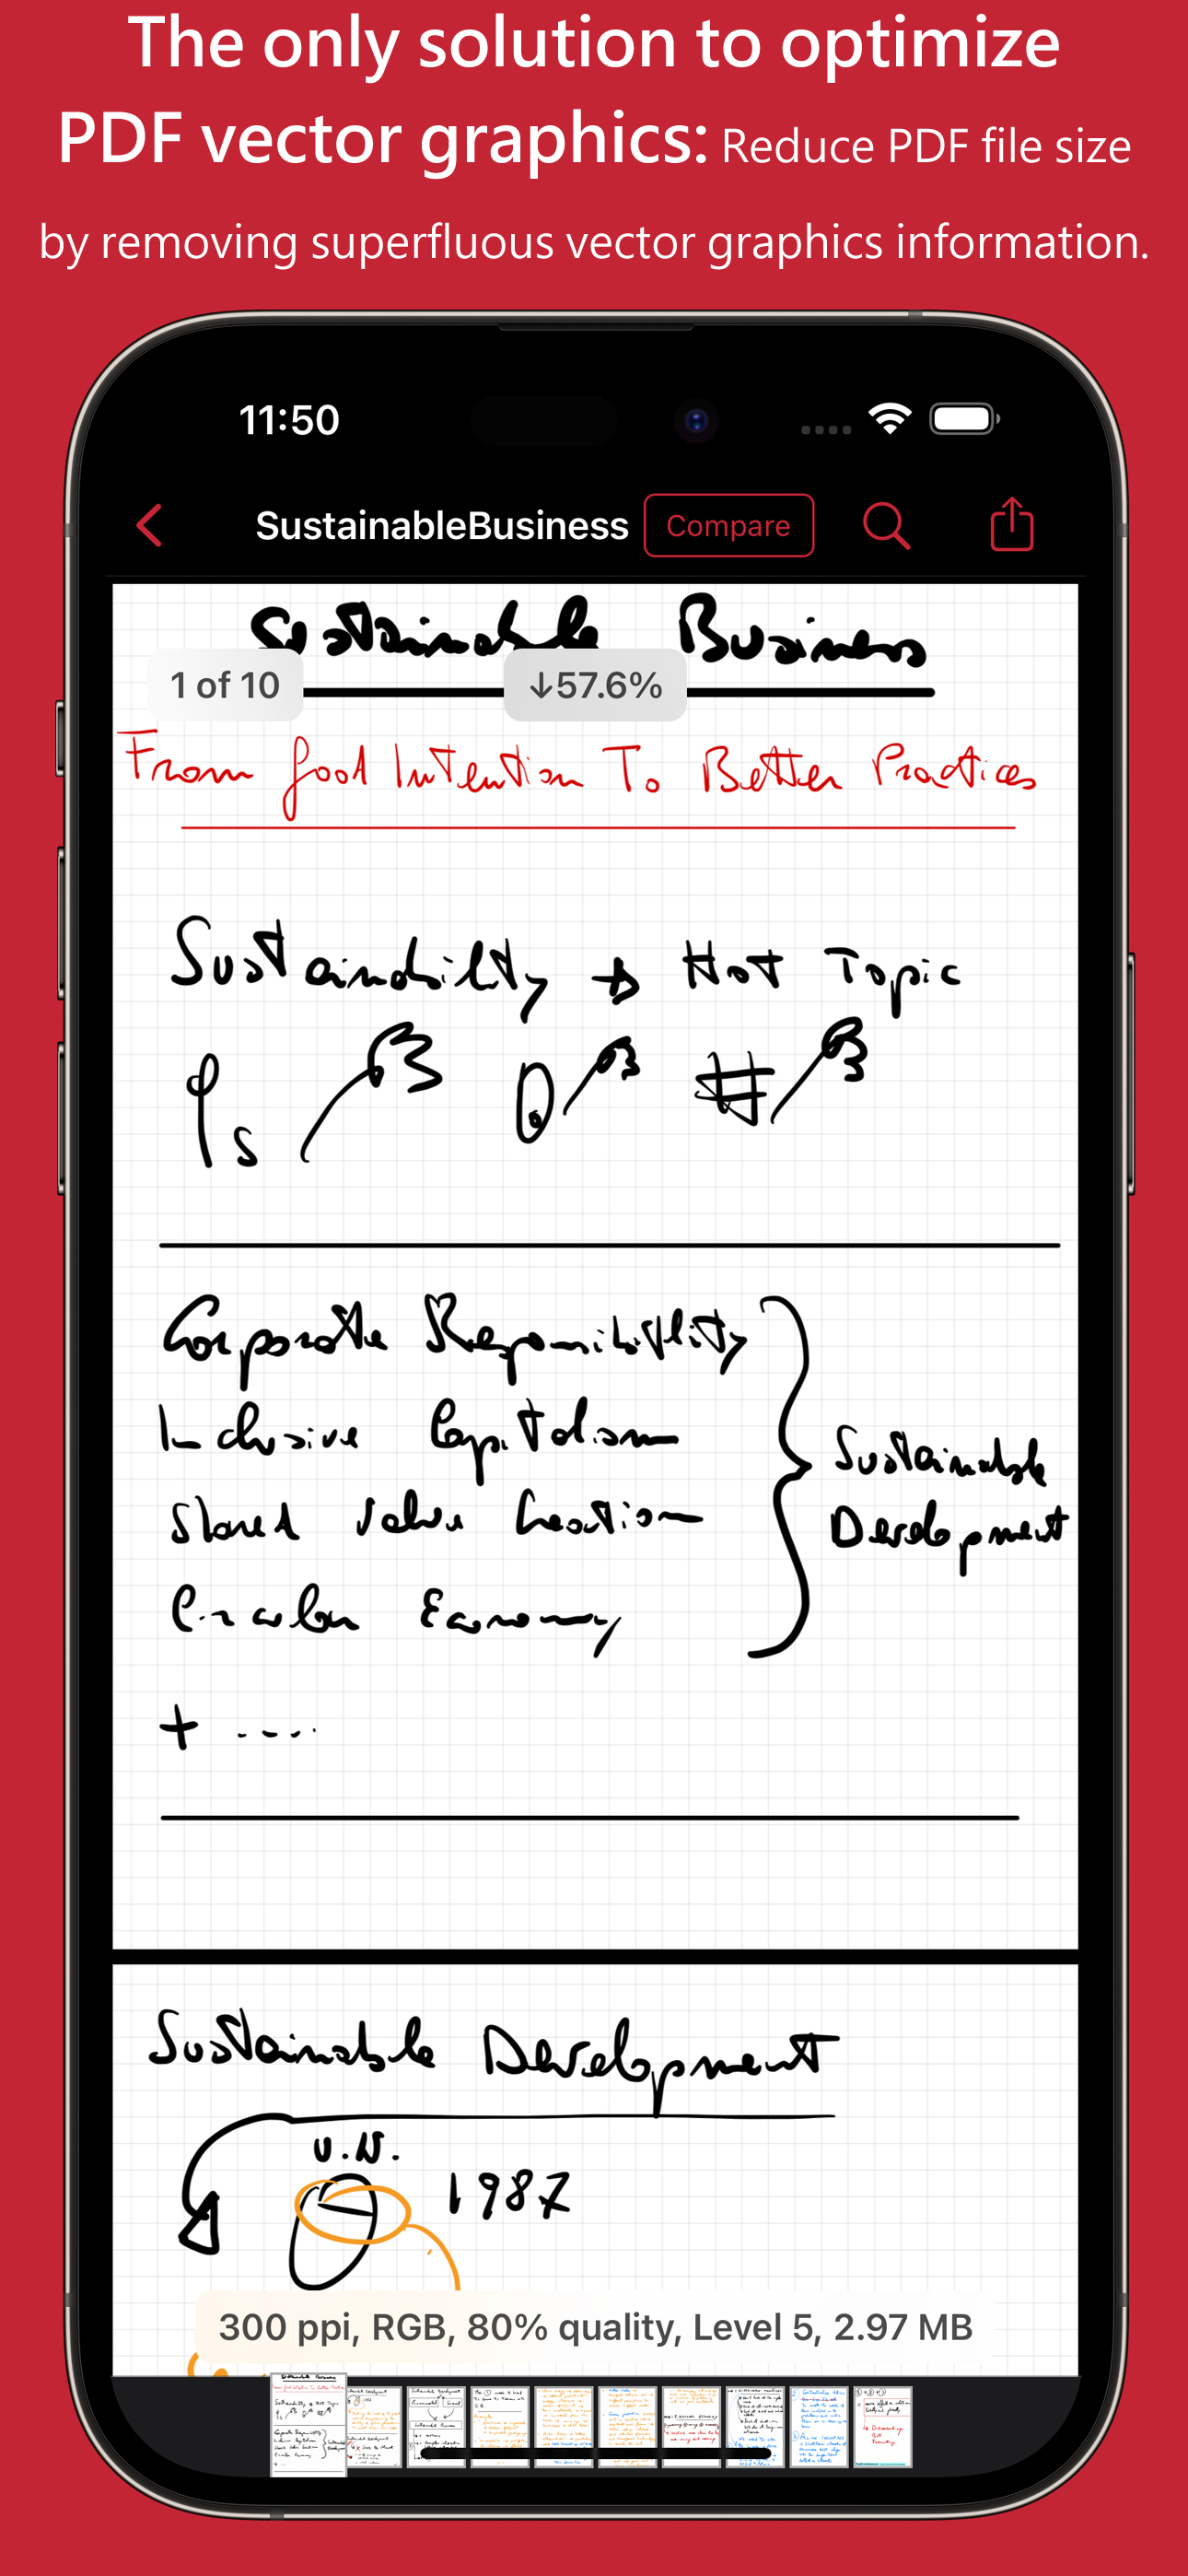 The only solution to optimize
PDF vector graphics: Reduce PDF file size
by removing superfluous vector graphics information.
11:50
SustainableBusiness Compare
Sustainable Business
1 of 10 ↓57.6%
From Good Intention To Better Practices
Sustainability → Hot Topic
#
Corporate Responsibility
Inclusive Capitalism
Shared Value Creation
Circular Economy
+ ....
Sustainable
Development
Sustainable Development
U.N.
1987
300 ppi, RGB, 80% quality, Level 5, 2.97 MB